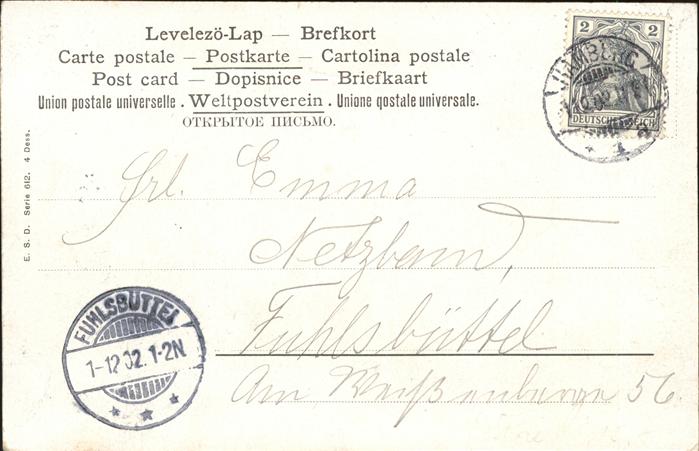 Levelezö-Lap — Brefkort
Carte postale — Postkarte — Cartolina postale
Post card — Dopisnice — Briefkaart
Union postale universelle . Weltpostverein . Unione qostale universale.
ОТКРЫТОЕ ПИСЬМО.
2 2
HAMBURG
1
DEUTSCHES REICH
E. S. D. Serie 612. 4 Dess.
Frl. Emma
Fuhlsbüttel
Am 56.
FUHLSBÜTTEL
1-12 02. 1-2N